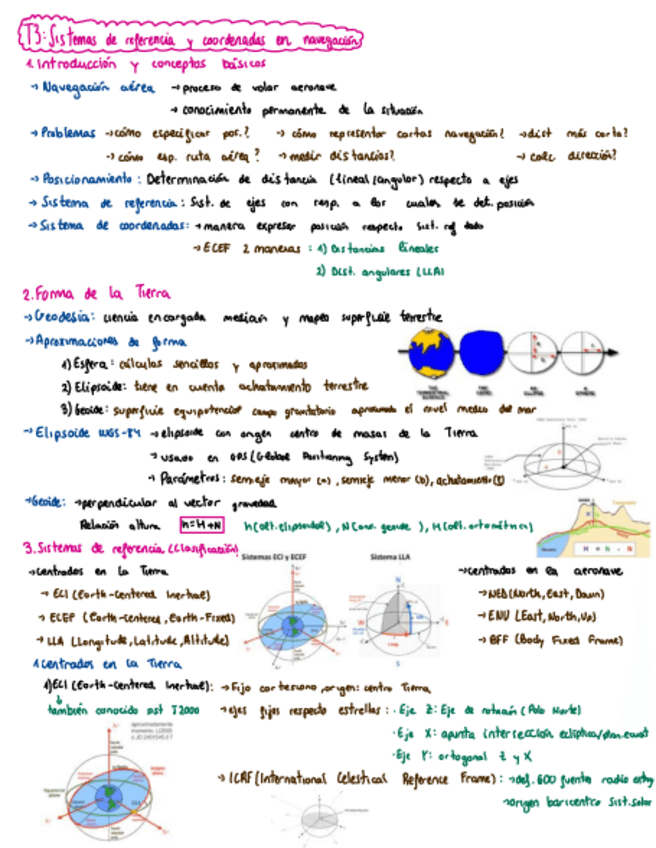 T3: Sistemas de referencia y coordenadas en navegación
1. Introducción y conceptos básicos
→ Navegación aérea → proceso de volar aeronave
→ conocimiento permanente de la situación
→ Problemas → cómo especificar pos.? → cómo representar cartas navegación? → dist más corta?
→ cómo esp. ruta aérea? → medir distancias? → calc. dirección?
→ Posicionamiento: Determinación de distancia (lineal/angular) respecto a ejes
→ Sistema de referencia: Sist. de ejes con resp. a los cuales se det. posición
→ Sistema de coordenadas: → manera expresar posición respecto sist. ref dado
→ ECEF 2 maneras: 1) Distancias lineales
2) Dist. angulares (LLA)
2. Forma de la Tierra
→ Geodesia: ciencia encargada medición y mapeo superficie terrestre
→ Aproximaciones de forma
1) Esfera: cálculos sencillos y aproximados
2) Elipsoide: tiene en cuenta achatamiento terrestre
3) Geoide: superficie equipotencial campo gravitatorio aproximado el nivel medio del mar
→ Elipsoide WGS-84 → elipsoide con origen centro de masas de la Tierra
→ usado en GPS (Global Positioning System)
→ Parámetros: semieje mayor (a), semieje menor (b), achatamiento (f)
→ Geoide: → perpendicular al vector gravedad
Relación altura h=H+N h(alt. elipsoidal), N(ond. geoide), H(alt. ortométrica)
H = h - N
3. Sistemas de referencia (Clasificación)
Sistemas ECI y ECEF Sistema LLA
→ centrados en la Tierra → centrados en la aeronave
→ ECI (Earth-Centered Inertial) → NED (North, East, Down)
→ ECEF (Earth-Centered, Earth-Fixed) → ENU (East, North, Up)
→ LLA (Longitude, Latitude, Altitude) → BFF (Body Fixed Frame)
N
W E
S
1. Centrados en la Tierra
1) ECI (Earth-Centered Inertial): → Fijo cartesiano, origen: centro Tierra
también conocido sist J2000 → ejes fijos respecto estrellas: · Eje Z: Eje de rotación (Polo Norte)
· Eje X: apunta intersección eclíptica/plan. ecuat
· Eje Y: ortogonal Z y X
→ ICRF (International Celestical Reference Frame): → def. 600 fuentes radio
→ origen baricentro sist. solar